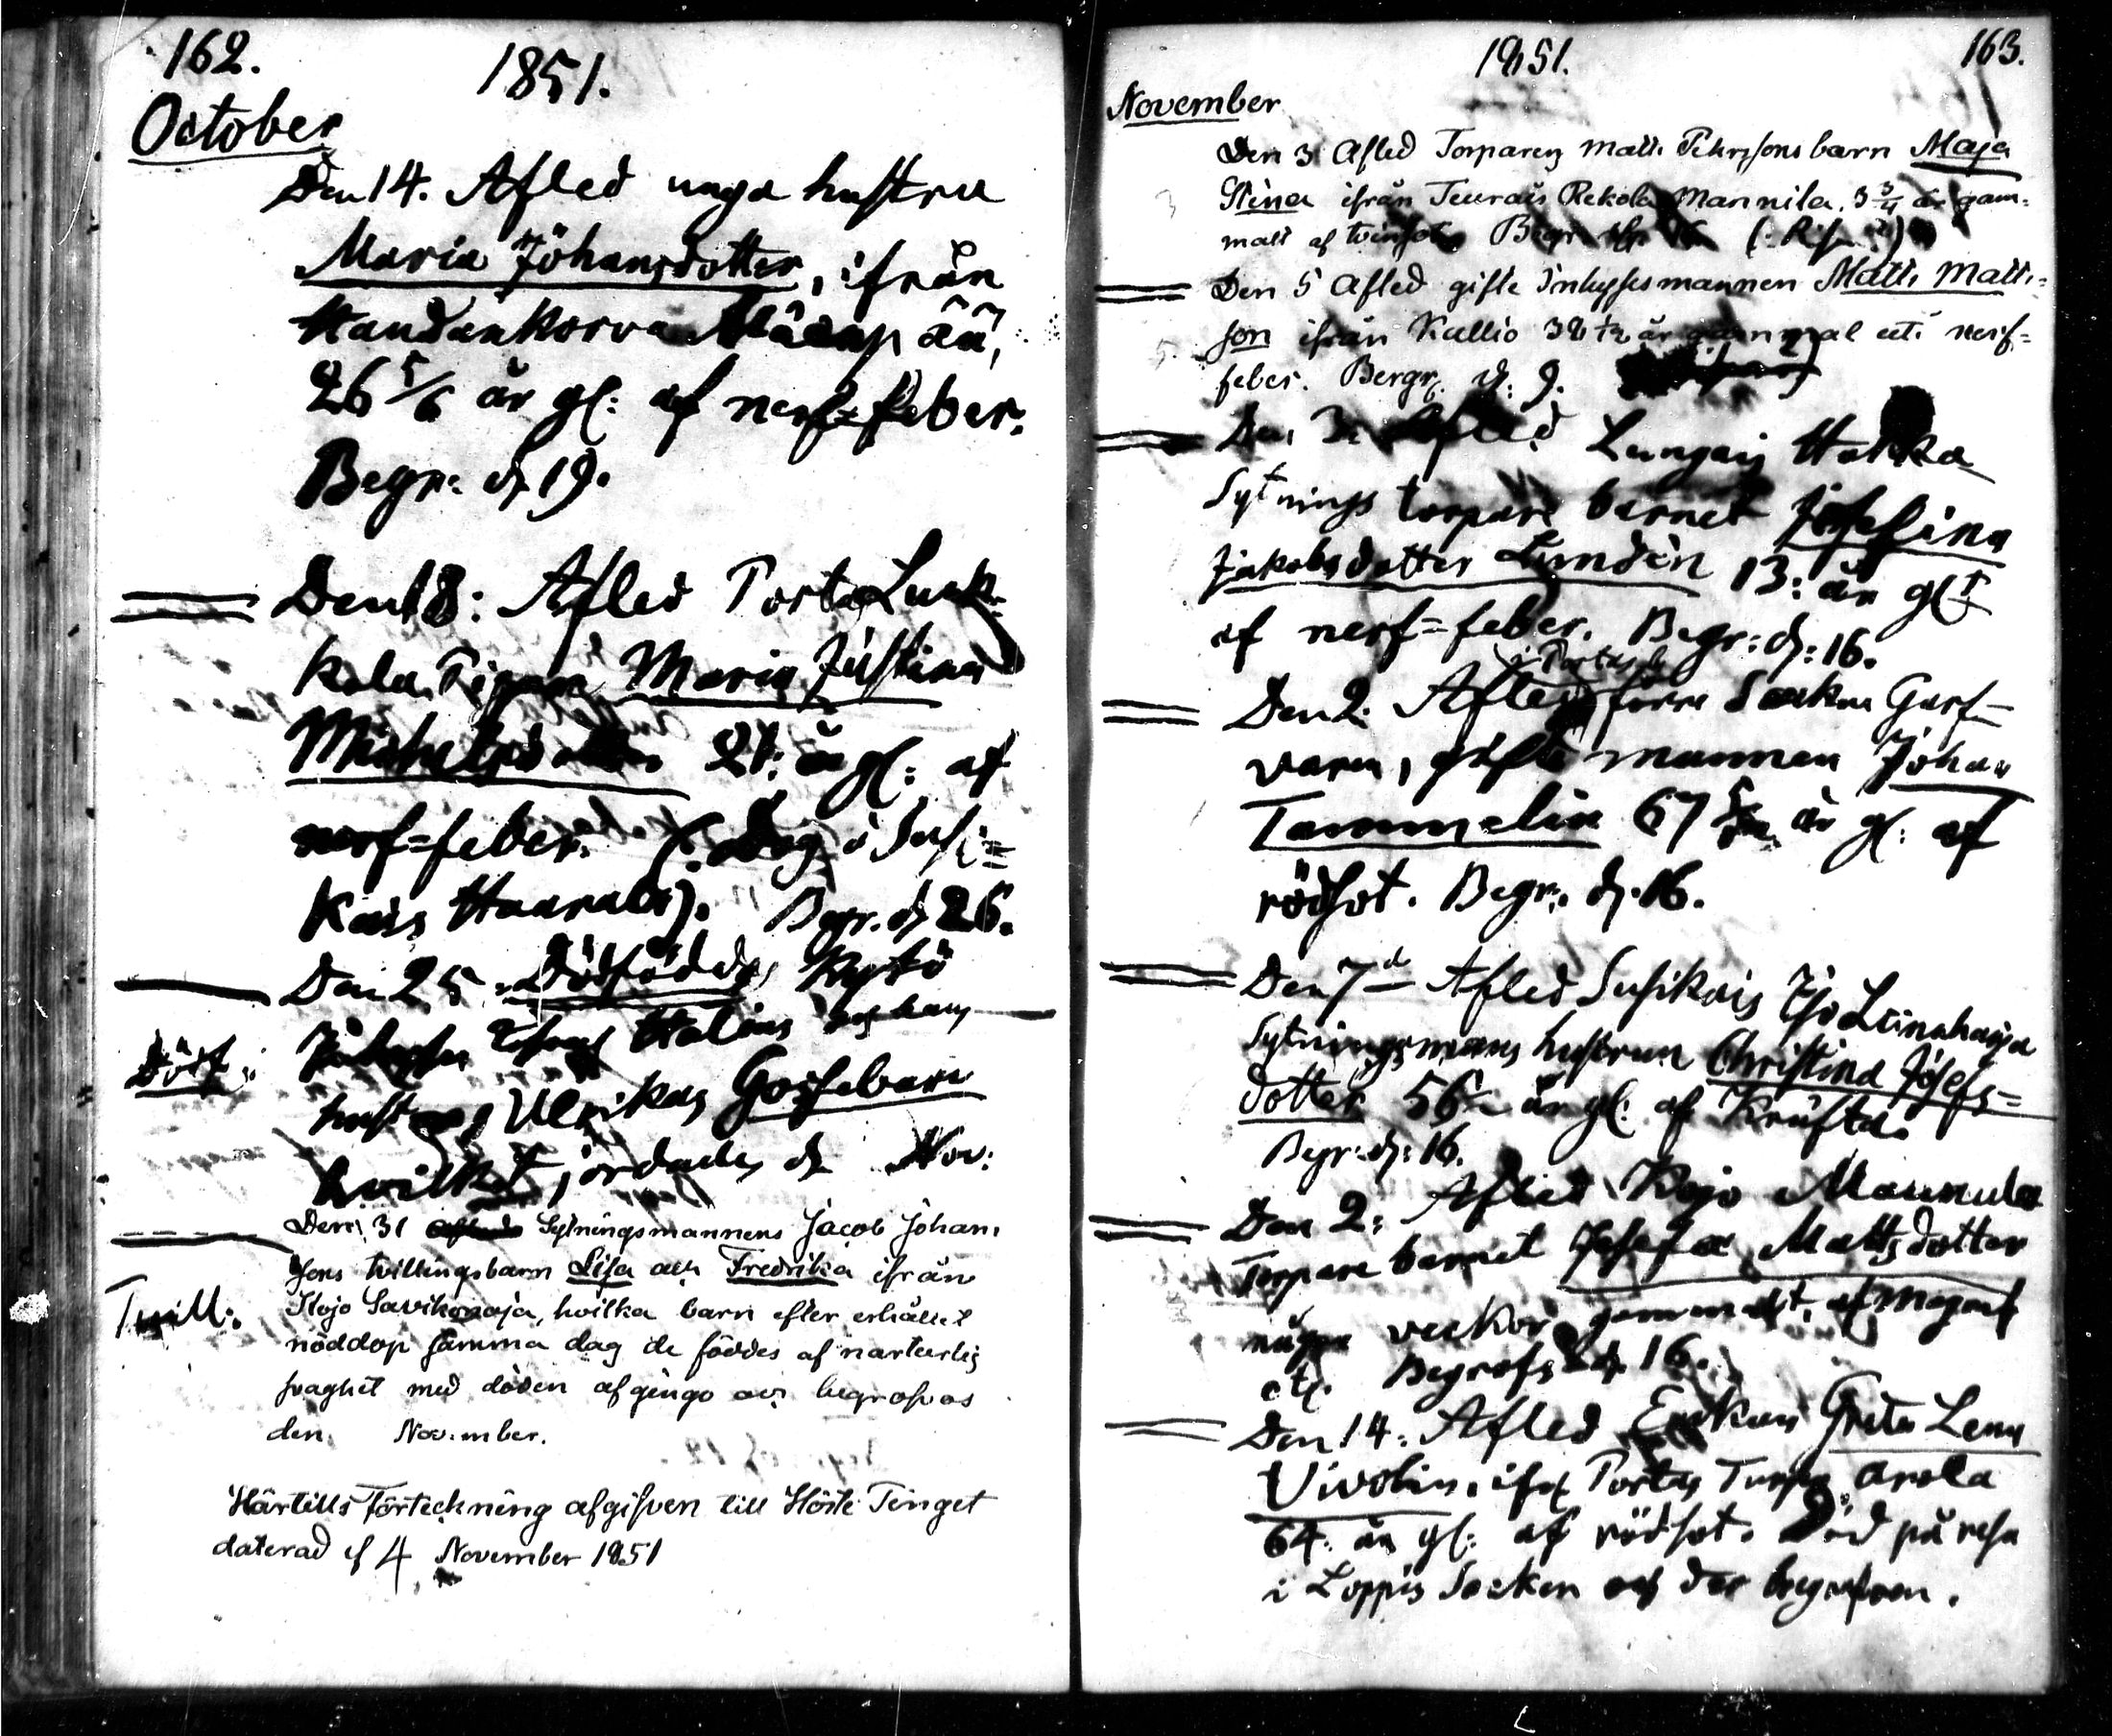 162.
1851.
October
Den 14. Afled unga hustru
Maria Johansdotter, ifrån
26 5/6 år gl: af nerf=feber.
Begr: d. 19.
Den 18: Afled Porta Luk
kola Pigan Maria Justina
21: år gl: af
nerf=feber. (: Dog i Susi=
kais Haarala). Begr. d. 26.
Den 25 Dödföddes
Dödf:
hustrus Ulrikas Gossebarn
hvilket jordades d. Nov:
Den 31 Sytningsmannens Jacob Johans
sons tvillingsbarn Lisa och Fredrika ifrån
Twill:
Kojo Savikonoja, hvilka barn efter erhållet
nöddop samma dag de föddes af naturlig
svaghet med döden afgingo och begrofvos
den November.
Härtills Förteckning afgifven till Höste Tinget
daterad d. 4 November 1851
1851.
163.
November
Den 3 Afled Torparen Matts Pehrssons barn Maja
Stina ifrån Teuro Rekola Mannila, 3 3/4 år gam=
malt af tvinsot Begr
Den 5 Afled gifte Inhysesmannen Matts Matts=
son ifrån Kallio 38 1/2 år gammal uti nerf=
feber. Begr. d. 9.
Den 3. Afled Lungois Hakka
Sytnings torpare barnet Josefina
Jakobsdotter Lundèn 13: år glt
af nerf=feber. Begr: d: 16.
i Portas by
Den 2. Afled förre Socken Garf=
varen, gifte mannen Johan
Tammelin 67 år gl: af
rödsot. Begr: d. 16.
Den 7de Afled Susikais Iso Leinahaija
Sytningsmans hustrun Christina Josefs=
dotter 56 år gl: af Kräfta.
Begr: d: 16.
Den 2: Afled Kojo Mannula
Torpare barnet Josefa Mattsdotter
några veckor gammalt, af magref
etc. Begrofs d. 16.
Den 14: Afled Enkan Greta Lena
Vivolin, ifrå Portas Turpa Arola
64. år gl: af rödsot. Död på resa
i Loppis Socken och der begrafven.